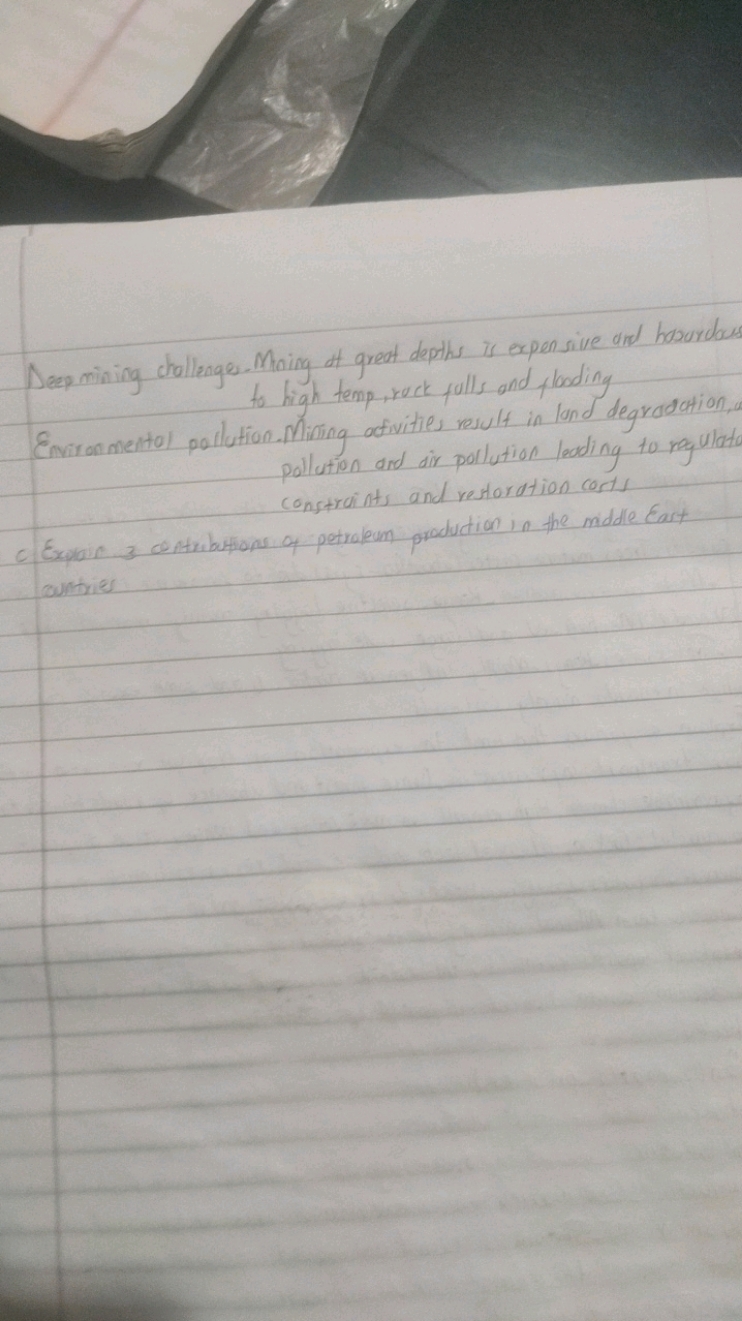 Deep mining challenges. Mning at great depths is expensive and hazardous
to high temp, rock falls and flooding
Environmental pollution. Mining activities result in land degradation,
pollution and air pollution leading to
constraints and restoration costs
c) Explain 3 contributions of petroleum production in the middle East
countries